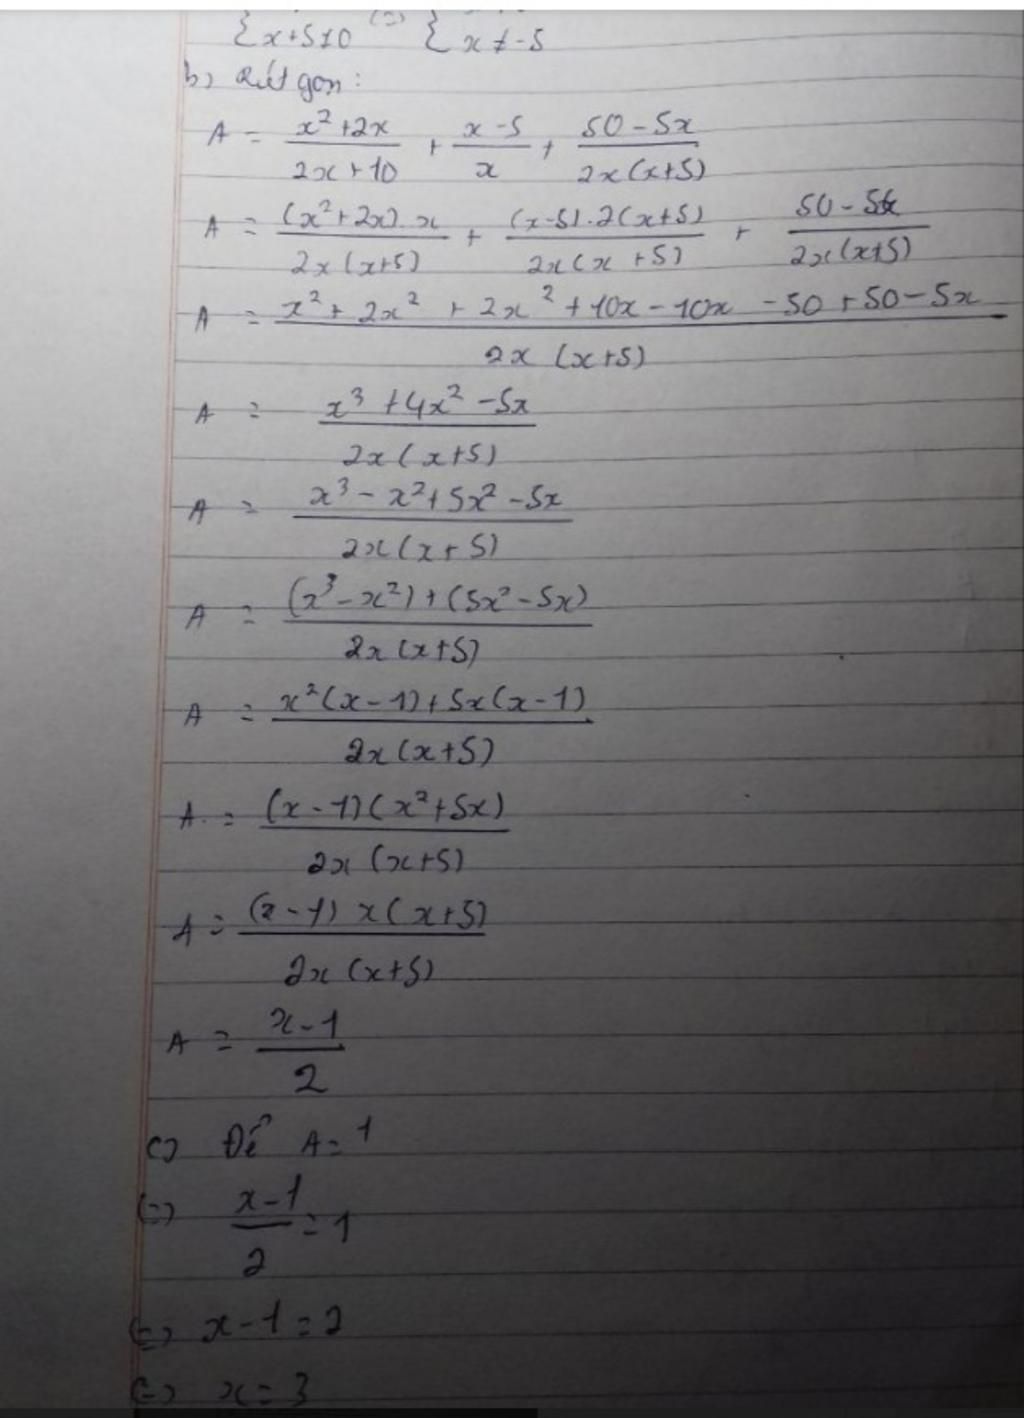 { x+5≠0 (=) { x ≠ -5
b) Rút gọn:
A = (x²+2x)/(2x+10) + (x-5)/x + (50-5x)/(2x(x+5))
A = ((x²+2x).x)/(2x(x+5)) + ((x-5).2(x+5))/(2x(x+5)) + (50-5x)/(2x(x+5))
A = (x²+2x²+2x²+10x-10x-50+50-5x)/(2x(x+5))
A = (x³+4x²-5x)/(2x(x+5))
A = (x³-x²+5x²-5x)/(2x(x+5))
A = ((x³-x²)+(5x²-5x))/(2x(x+5))
A = (x²(x-1)+5x(x-1))/(2x(x+5))
A = ((x-1)(x²+5x))/(2x(x+5))
A = ((x-1)x(x+5))/(2x(x+5))
A = (x-1)/2
c) Để A=1
(=) (x-1)/2 = 1
(=) x-1=2
(=) x=3